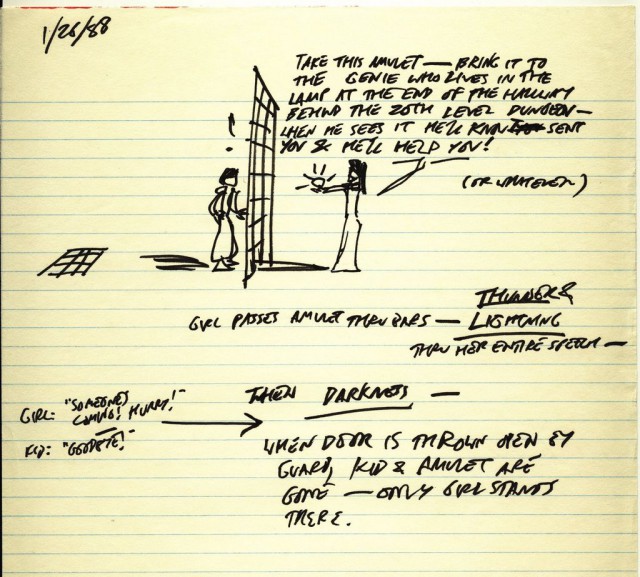 1/26/88
TAKE THIS AMULET — BRING IT TO
THE GENIE WHO LIVES IN THE
LAMP AT THE END OF THE HALLWAY
BEHIND THE 20TH LEVEL DUNGEON —
WHEN HE SEES IT HE'LL KNOW SENT
YOU & HE'LL HELP YOU!
! 
(OR WHATEVER)
THUNDER &
LIGHTNING
GIRL PASSES AMULET THRU BARS —
THRU HER ENTIRE SPEECH —
GIRL: "SOMEONE'S
COMING! HURRY!"
KID: "GOODBYE!"
THEN DARKNESS —
WHEN DOOR IS THROWN OPEN BY
GUARD, KID & AMULET ARE
GONE — ONLY GIRL STANDS
THERE.